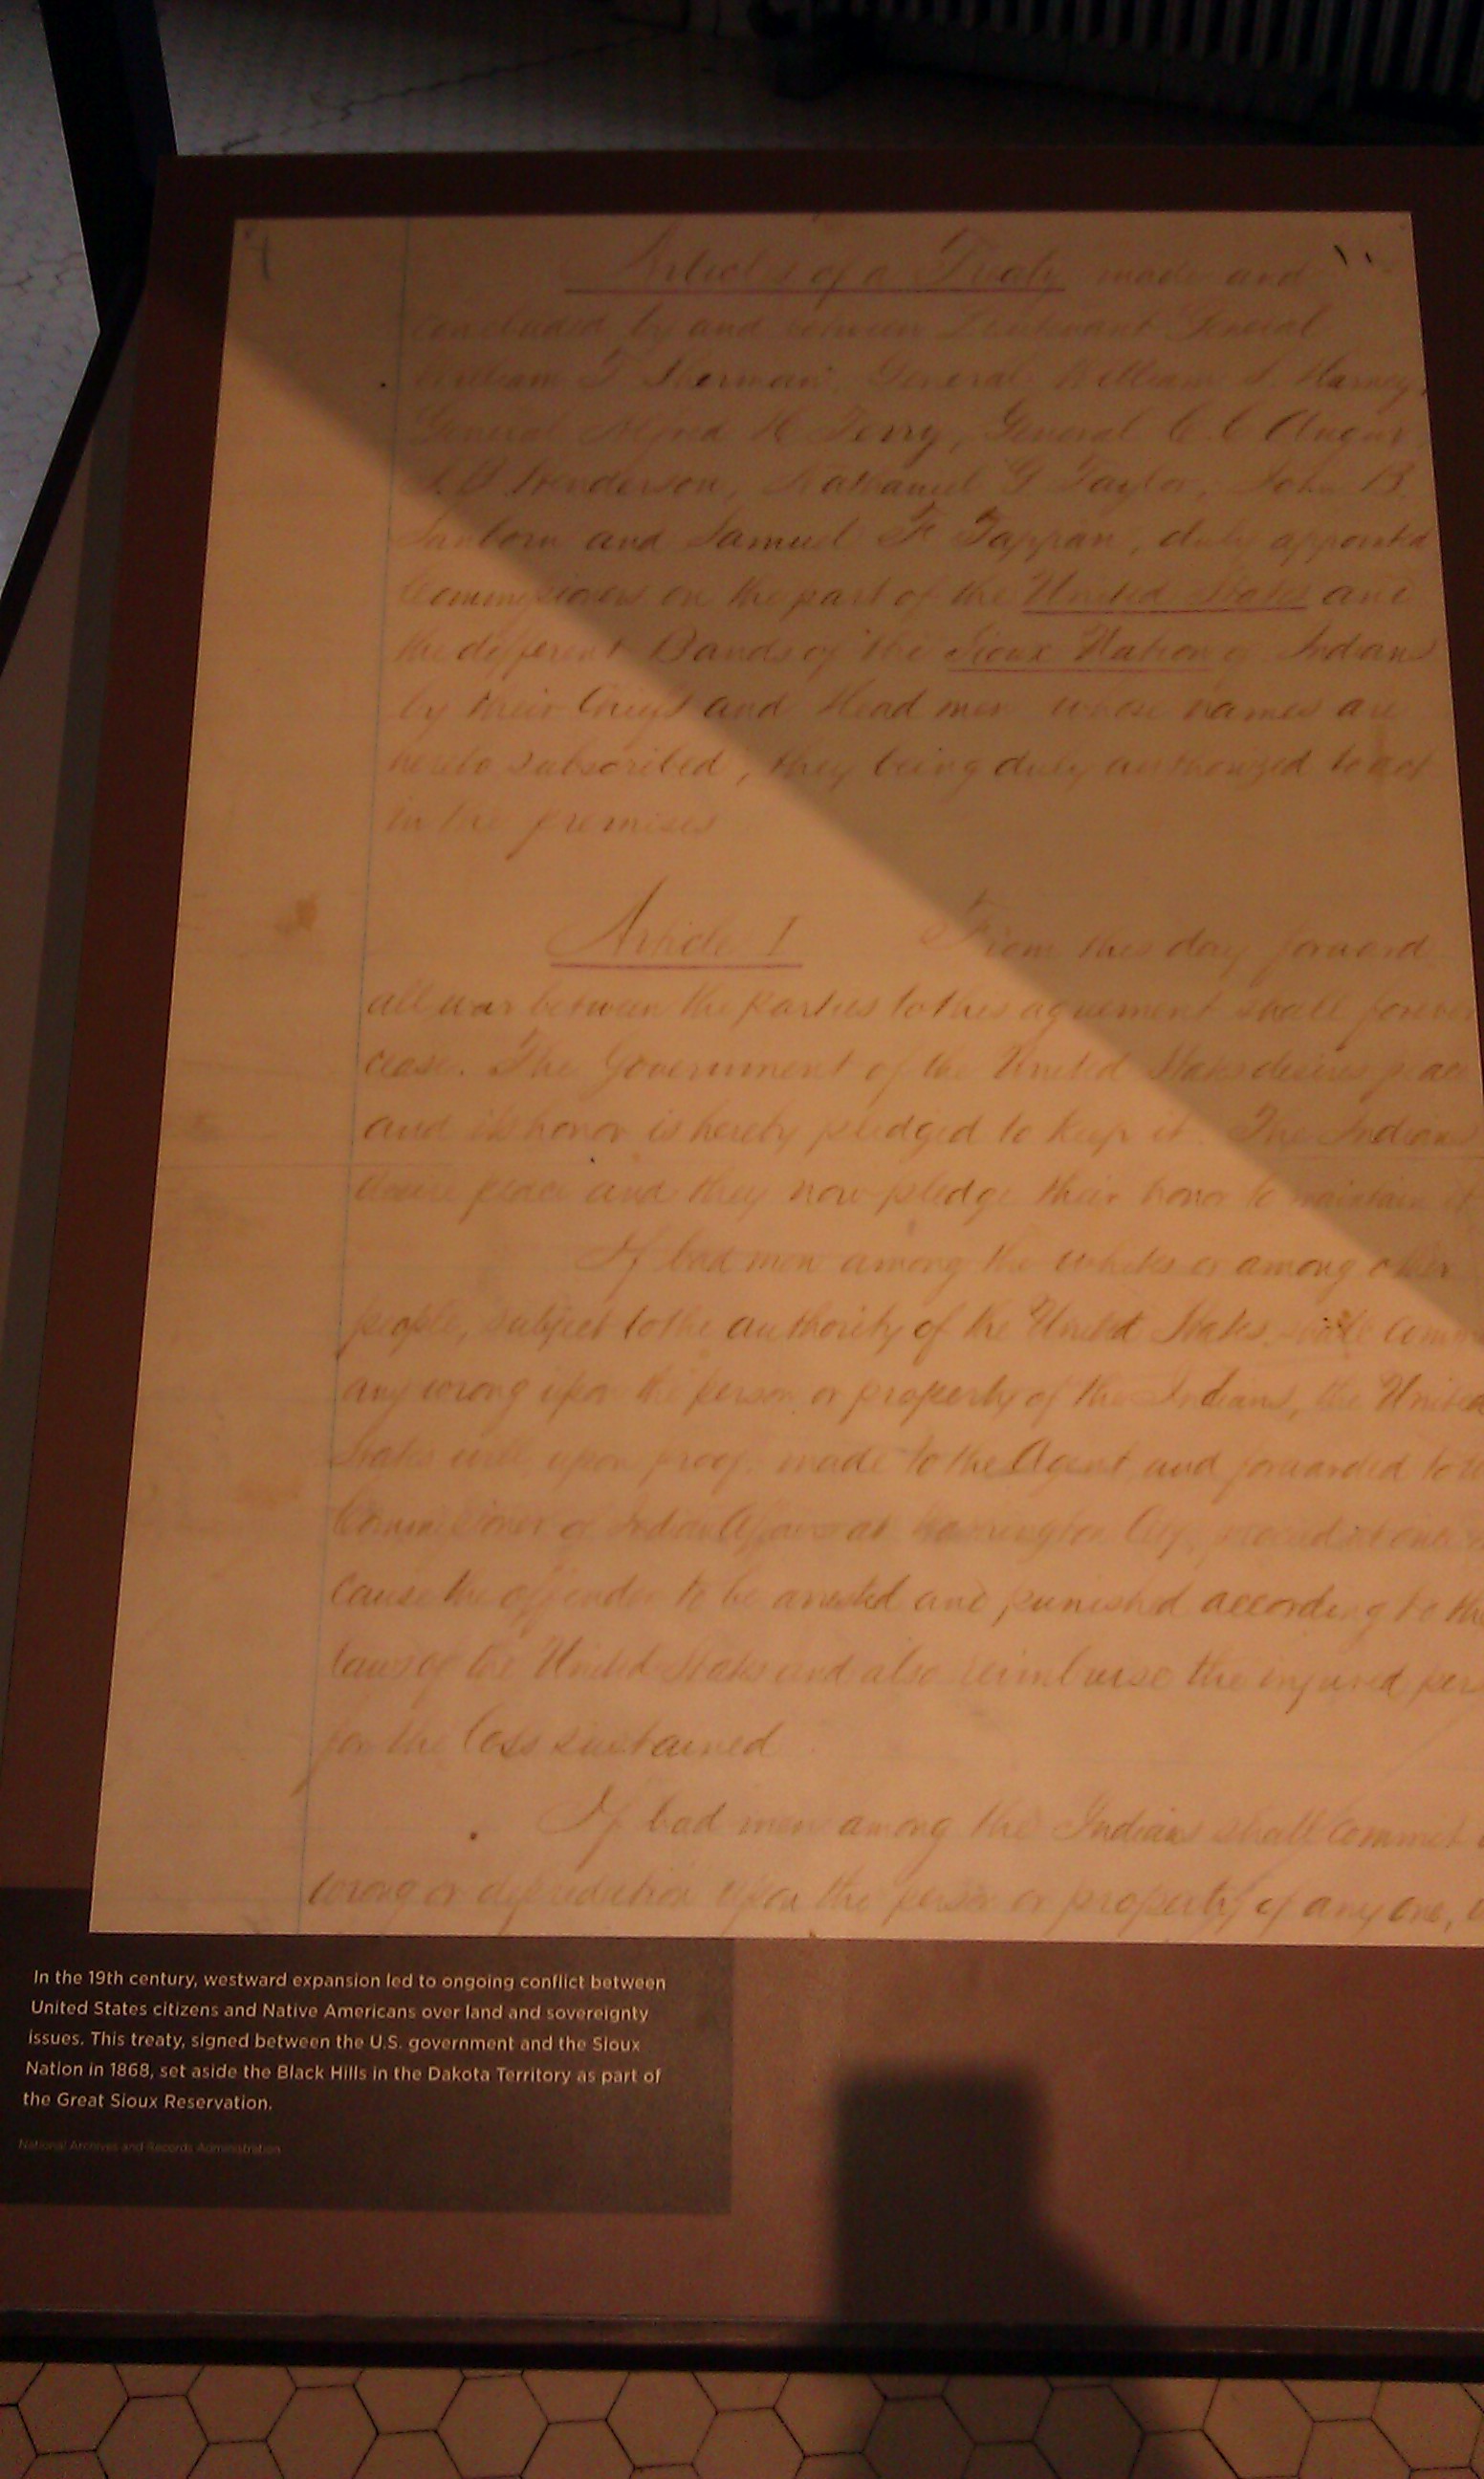 Articles of a Treaty made and
concluded by and between Lieutenant General
William T. Sherman, General William S. Harney,
General Alfred H. Terry, General C. C. Augur,
J. B. Henderson, Nathaniel G. Taylor, John B.
Sanborn and Samuel F. Tappan, duly appointed
Commissioners on the part of the United States and
the different Bands of the Sioux Nation of Indians
by their Chiefs and Head men whose names are
hereto subscribed, they being duly authorized to act
in the premises
Article I From this day forward
all war between the parties to this agreement shall forever
cease. The Government of the United States desires peace
and its honor is hereby pledged to keep it. The Indians
desire peace and they now pledge their honor to maintain it
If bad men among the whites or among other
people, subject to the authority of the United States shall
any wrong upon the person or property of the Indians, the United
States will upon proof made to the Agent and forwarded to
Commissioner of Indian Affairs at Washington City, proceed at once
cause the offender to be arrested and punished according to the
laws of the United States and also reimburse the injured
for the loss sustained
If bad men among the Indians shall commit
wrong or depredation upon the person or property of any one,
In the 19th century, westward expansion led to ongoing conflict between
United States citizens and Native Americans over land and sovereignty
issues. This treaty, signed between the U.S. government and the Sioux
Nation in 1868, set aside the Black Hills in the Dakota Territory as part of
the Great Sioux Reservation.
National Archives and Records Administration